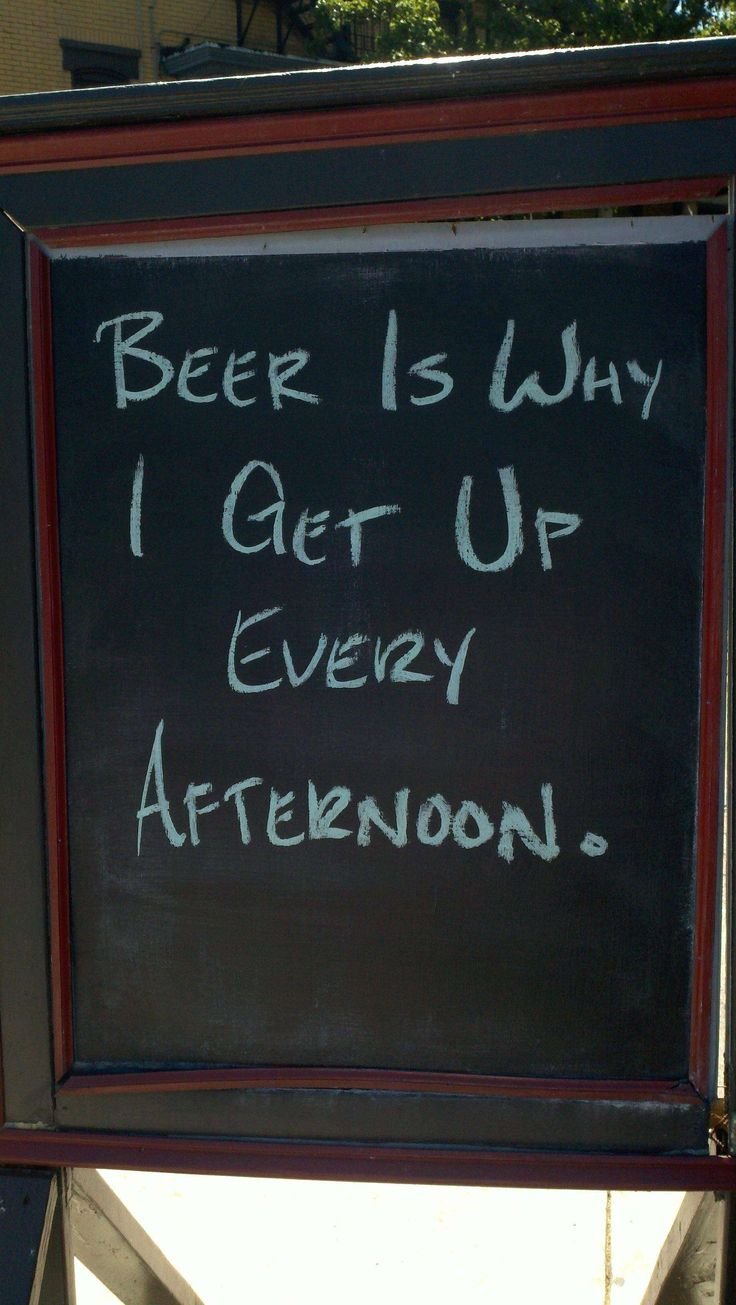 Beer Is Why
I Get Up
Every
Afternoon.